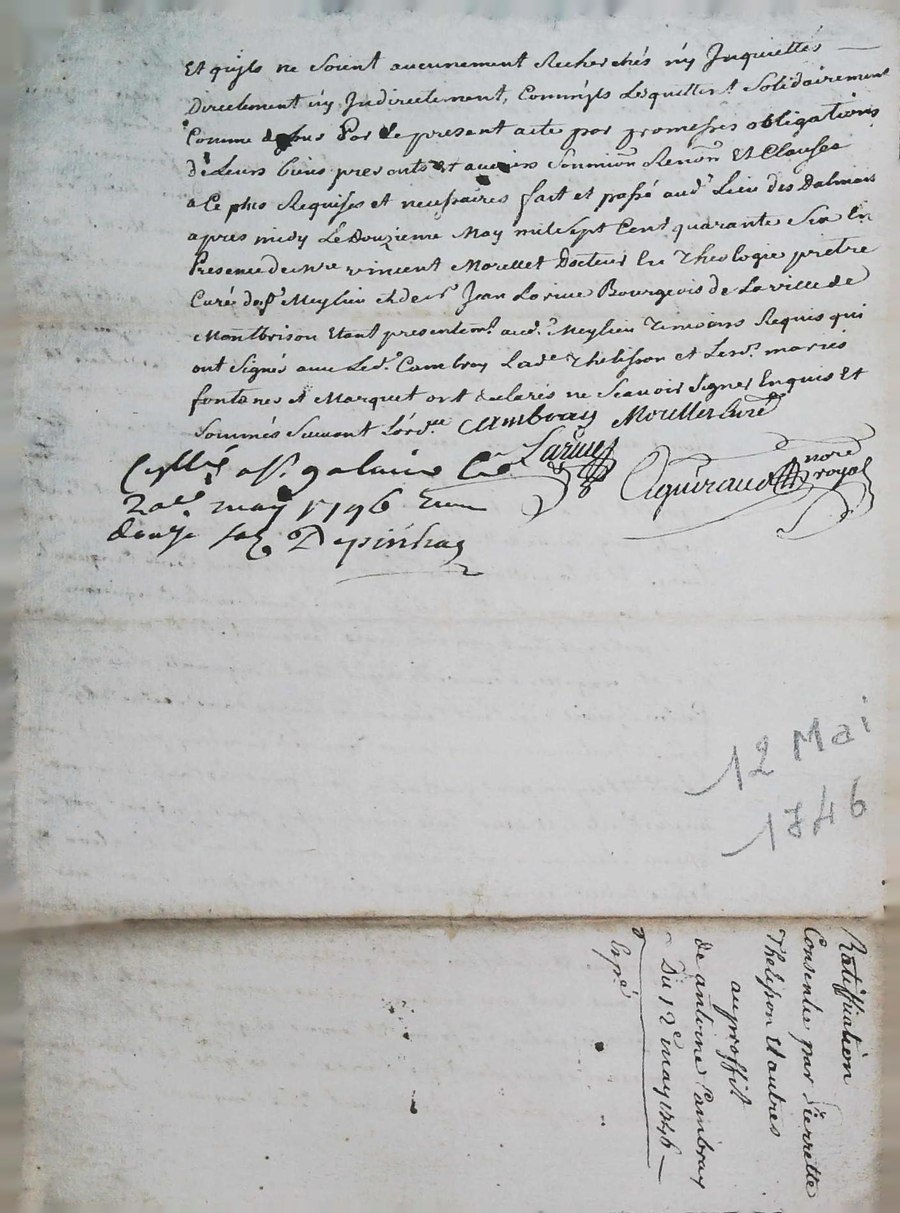 Et quils ne soient aucunement Recherchés n'y Inquiettés
Directement n'y Indirectement, Comm'ils Lesquittent Solidairement
Comme dessus Par le present acte par promesses obligations
de Leurs biens presents et avenirs Soumiōn Renōn Et Clauses
a Ce plus Requises et necessaires fait et passé aud.t Lieu des Dalmais
apres midy Le Douzieme May mil sept Cent quarante Six En
Presence de vincent Morellet Docteur En Theologie pretre
Curé Meylieu et de s.r Jean Larue Bourgeois de La ville de
Montbrison Etant presentem.t aud.t Meylieu Temoins Requis qui
ont Signés avec Led.t Cambray Lad.e Thelisson et Lesd.s mariés
fontanes et Marquet ont declarés ne Scavoir Signer Enquis Et
Sommés Suivant L'ord.ce Cambray Morellet Curé
Larue
Aguiraud nore royal
a St galmier
may 1746
douze sols Depinhac
12 Mai
1746
Ratiffication
Consentie par Pierrette
Thelisson et autres
au proffit
de antoine Cambray
Du 12e may 1746
Exp.é